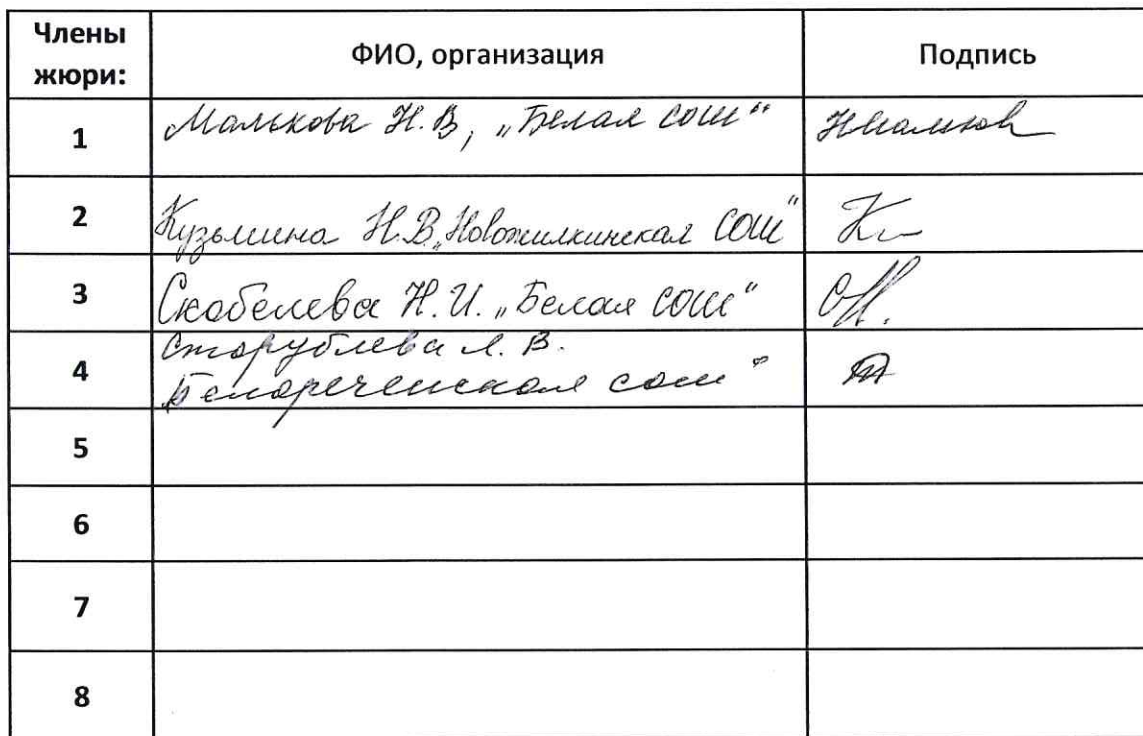 Члены жюри: ФИО, организация Подпись
1 Малькова Н.В, „Белая сош“
2 Кузьмина Н.В. „Новожилкинская СОШ"
3 Скобелева Н.И. „Белая СОШ"
4 Сторублева Л.В.
Белореченская сош"
5
6
7
8